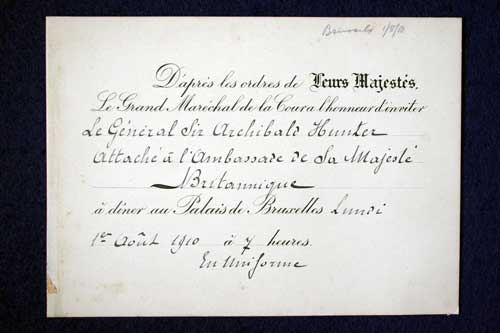 Brussels 1/8/10
D'après les ordres de Leurs Majestés,
Le Grand Maréchal de la Cour a l'honneur d'inviter
Le Général Sir Archibald Hunter
Attaché à l'Ambassade de Sa Majesté
Britannique
à dîner au Palais de Bruxelles Lundi
1er Août 1910 à 7 heures.
En Uniforme